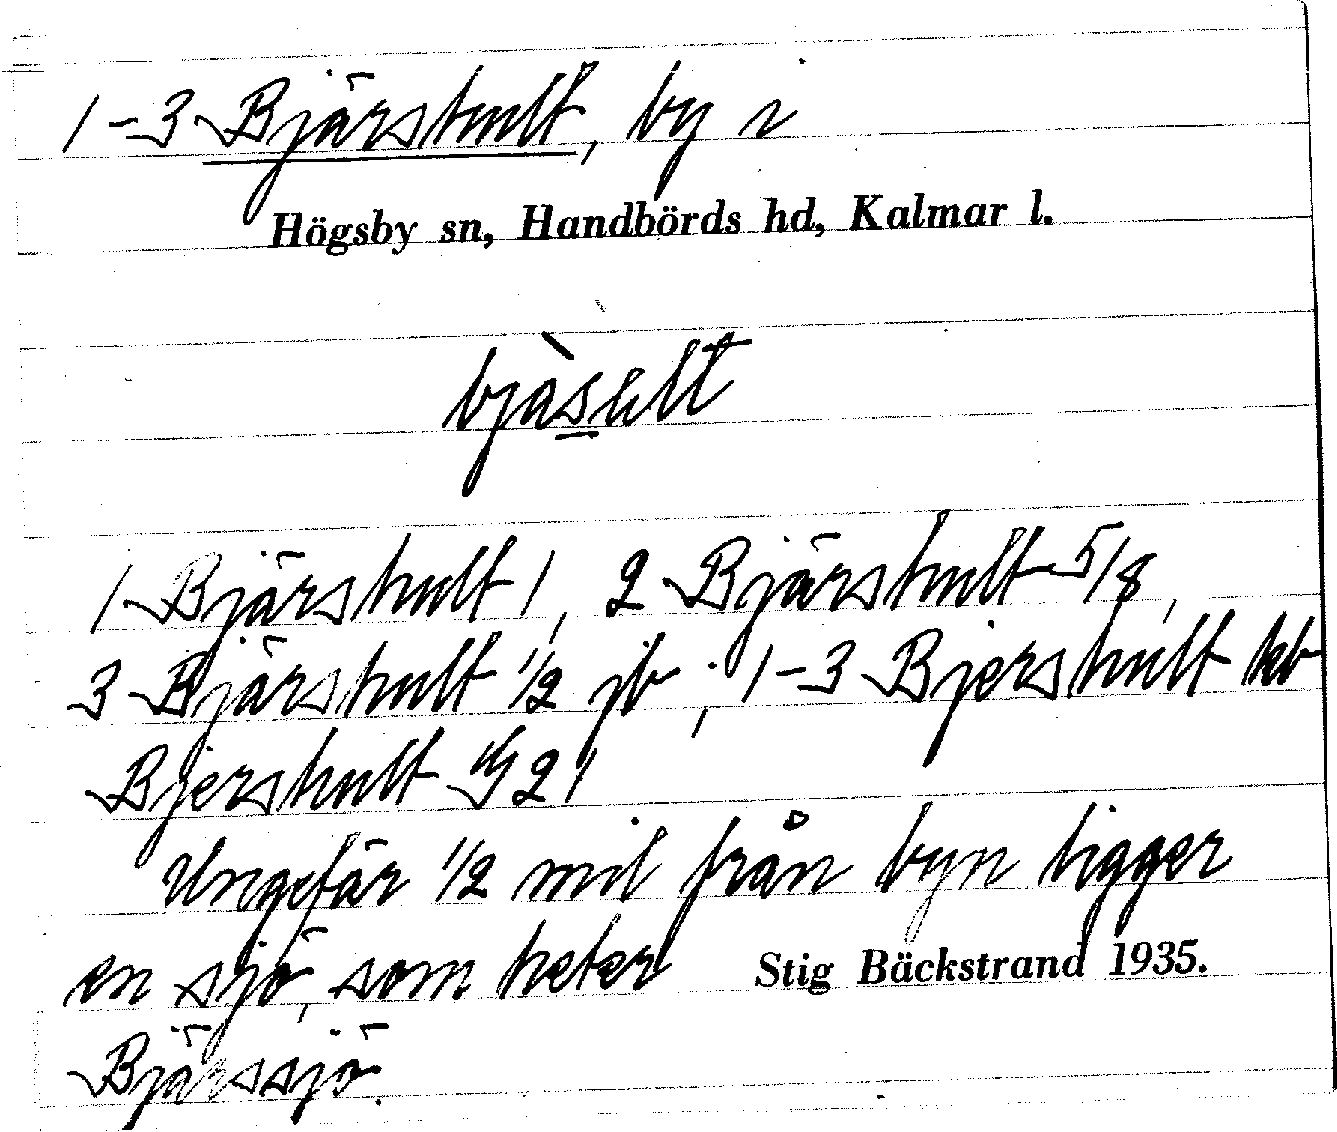 1-3 Bjärshult, by i
Högsby sn, Handbörds hd, Kalmar l.
1 Bjärshult 1, 2 Bjärshult 5/8,
3 Bjärshult 1/2 jb; 1-3 Bjershult kb
Bjershult 21
Ungefär 1/2 mil från byn ligger
en sjö, som heter
Stig Bäckstrand 1935.
Bjärssjö.